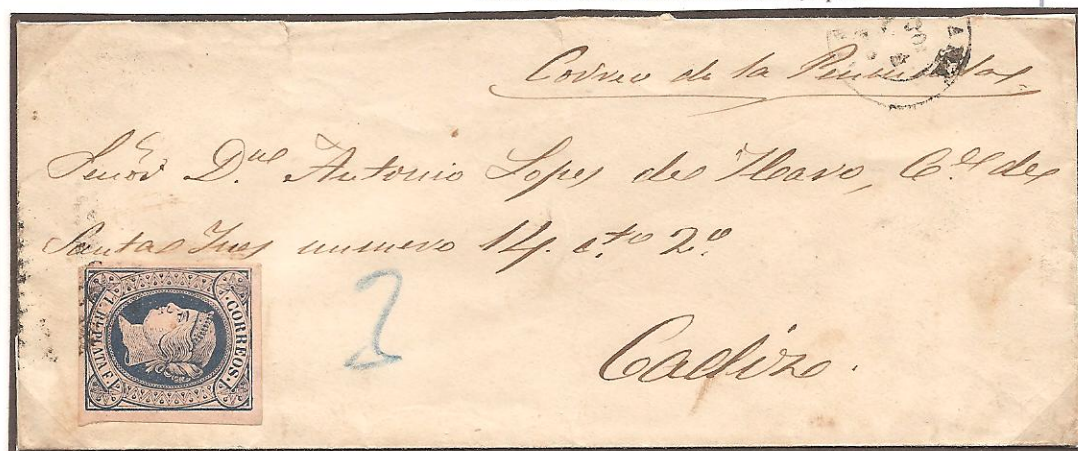 Correo de la Peninsula
Señor Dn. Antonio Lopes de Haro, C.e de
Santa Ines numero 14. cto 2o
2
Cadiz.
CORREOS
1 RL PLATA F.